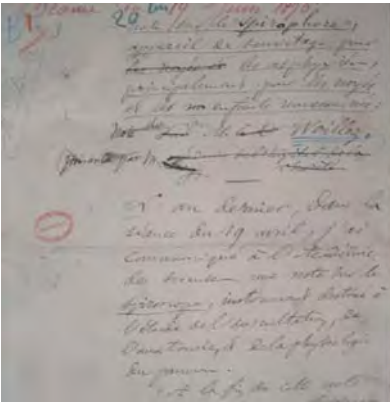 Séance du 19 juin 1876
20
Note sur le Spirophore,
appareil de sauvetage pour
les noyés et les asphyxiés,
principalement pour les noyés
et les enfants nouveau-nés.
Note de M. Woillez,
présentée par M.
L'an dernier, dans la
séance du 19 avril, j'ai
communiqué à l'Académie
des sciences une note sur le
spiroscope, instrument destiné à
l'étude de l'auscultation, de
l'anatomie, & de la physiologie
du poumon.
A la fin de cette note